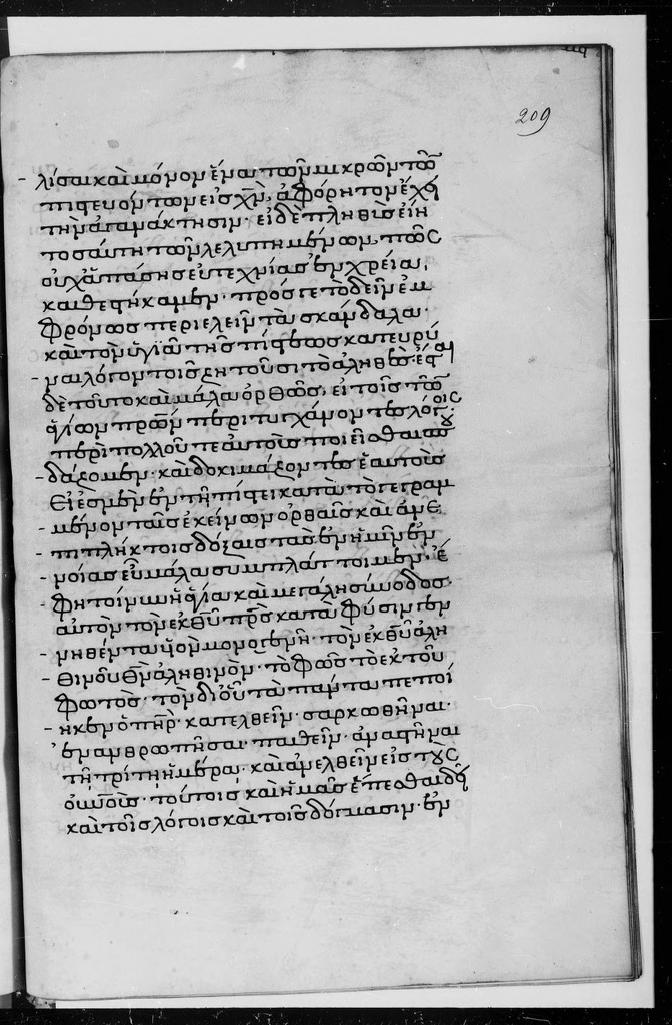 209
λίσαι καὶ μόνον ἕνα τῶν μικρῶν τῶν
πιστευόντων εἰς χν̄, ἀφόρητον ἔχει
τὴν ἀγανάκτησιν· εἰ δὲ πληθὺς εἴη
τοσαύτη τῶν λελυπημένων, πῶς
οὐχ ἁπάσης εὐτεχνίας ἐν χρείᾳ,
καθεστήκαμεν· πρός γε τὸ δεῖν ἐμ
φρόνως περιελεῖν τὰ σκάνδαλα·
καὶ τὸν ὑγιᾶ τῆς πίστεως κατευρῦ
ναι λόγον τοῖς ζητοῦσι τὸ ἀληθές· ἔσται
δὲ τοῦτο καὶ μάλα ὀρθῶς, εἰ τοῖς τῶν
ἁγίων πρῶν περιτυγχάνοντες λόγοις·
περὶ πολλοῦ τε αὐτοὺς ποιεῖσθαι σπου
δάζομεν· καὶ δοκιμάζοντες ἑαυτοὺς
εἰ ἐσμὲν ἐν τῇ πίστει κατὰ τὸ γεγραμ
μένον ταῖς ἐκείνων ὀρθαῖς καὶ ἀνε
πιπλήκτοις δόξαις τὰς ἐν ἡμῖν ἐν
νοίας εὖ μάλα συμπλάττοιμεν· ἔ
φη τοίνυν ἡ ἁγία καὶ μεγάλη σύνοδος·
αὐτὸν τὸν ἐκ θῡ πρ̄ς κατὰ φύσιν γεν
νηθέντα ῡν μονογενῆ· τὸν ἐκ θῡ ἀλη
θινοῦ θν̄ ἀληθινὸν· τὸ φῶς τὸ ἐκ τοῦ
φωτός· τὸν δι' οὗ τὰ πάντα πεποί
ηκεν ὁ πηρ̄· κατελθεῖν· σαρκωθῆναι·
ἐνανθρωπῆσαι· παθεῖν· ἀναστῆναι
τῇ τρίτῃ ἡμέρᾳ· καὶ ἀνελθεῖν εἰς τοὺς
οὐνοὺς· τούτοις καὶ ἡμᾶς ἕπεσθαι δεῖ
καὶ τοῖς λόγοις καὶ τοῖς δόγμασιν· ἐν